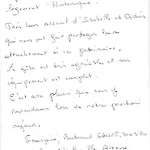 logement - Historique.
Très bon accueil d'Isabelle et Didier
qui nous ont fait partager leur
attachement à ce patrimoine.
Le gîte est très agréable et son
équipement est complet.
C'est avec plaisir que nous y
reviendrons lors de notre prochain
Françoise, Bertrand